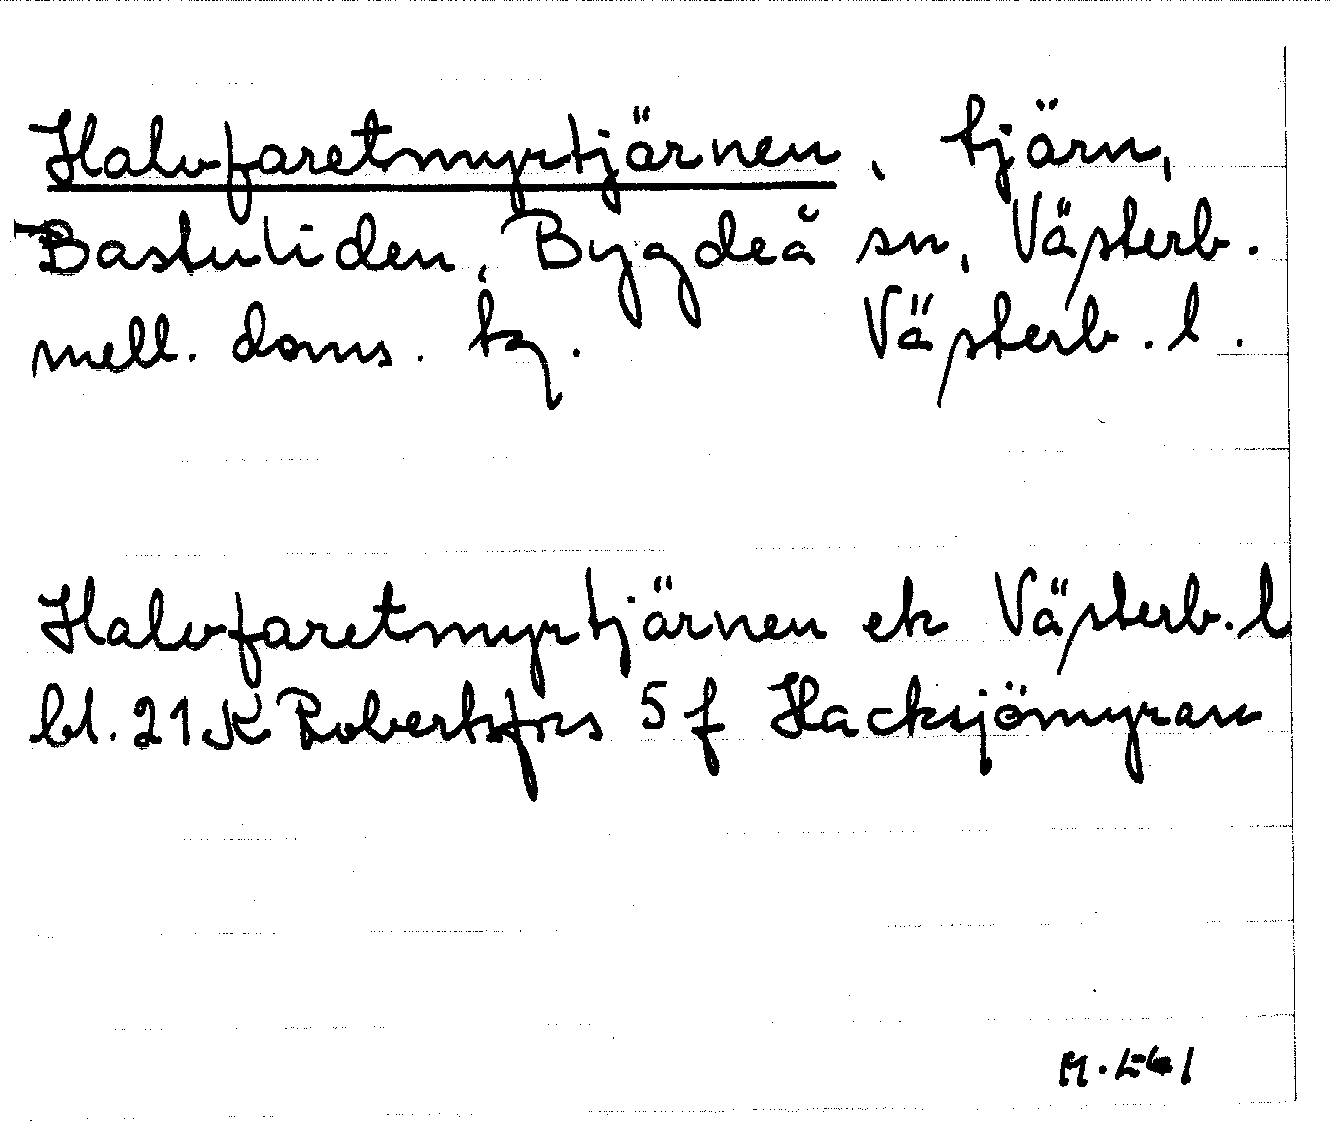 Halvfaretmyrtjärnen, tjärn,
Bastuliden, Bygdeå sn, Västerb.
mell. doms. tg. Västerb. l.
Halvfaretmyrtjärnen ek Västerb. l
bl. 21K Robertsfors 5 f Hacksjömyran